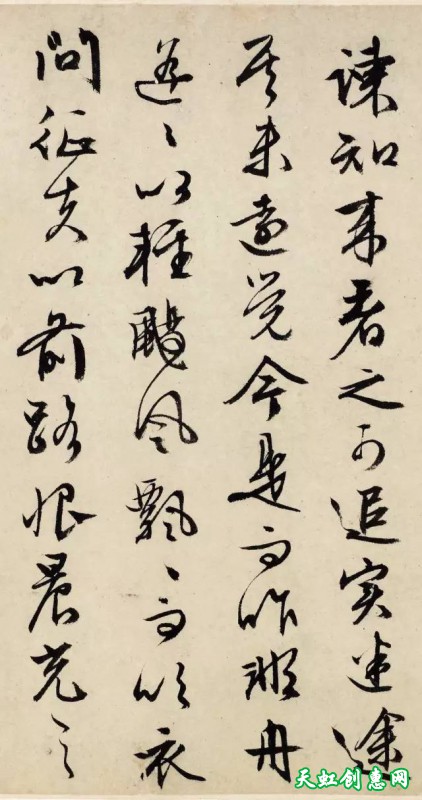 諫知来者之可追实迷途
其未遠覺今是而昨非舟
遥々以輕颺風飄々而吹衣
問征夫以前路恨晨光之
天虹创惠网